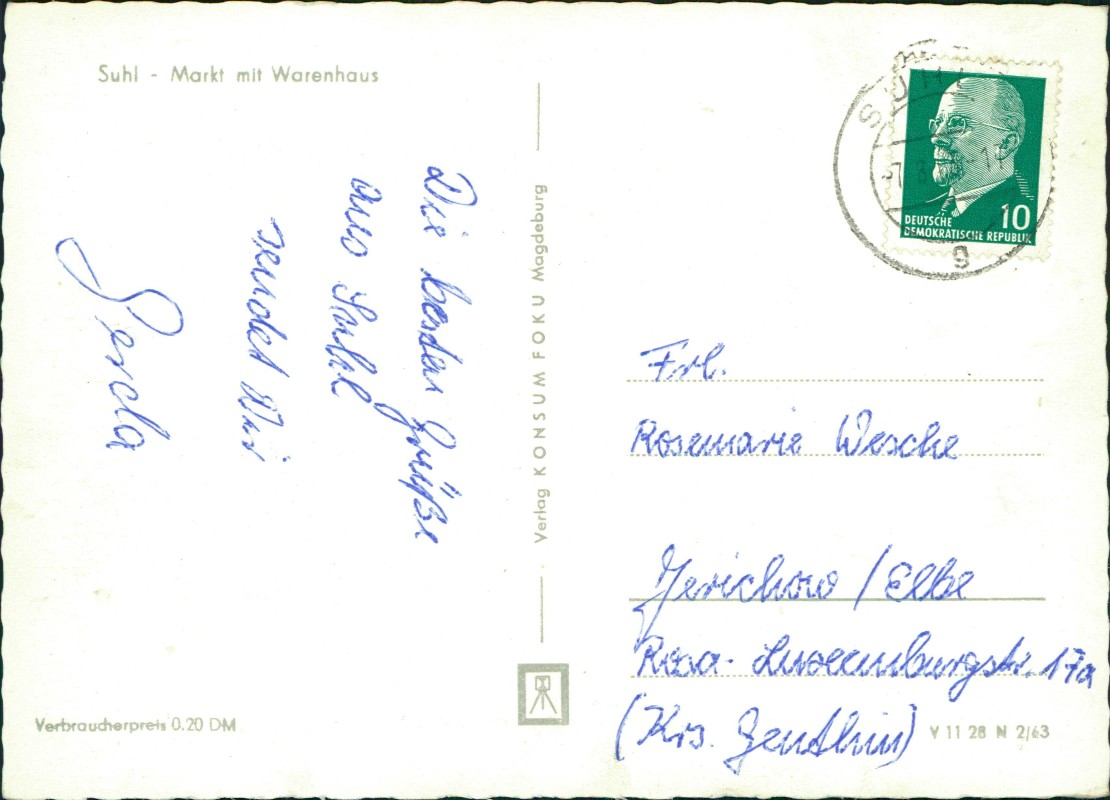 Suhl - Markt mit Warenhaus
Die besten Grüße
aus Suhl
sendet Dir
Gerda
Verlag KONSUM FOKU Magdeburg
SUHL
g
10
DEUTSCHE
DEMOKRATISCHE REPUBLIK
Frl.
Rosemarie Wesche
Jerichow / Elbe
Rosa-Luxemburgstr. 17a
(Krs. Genthin)
Verbraucherpreis 0.20 DM
V 11 28 N 2/63